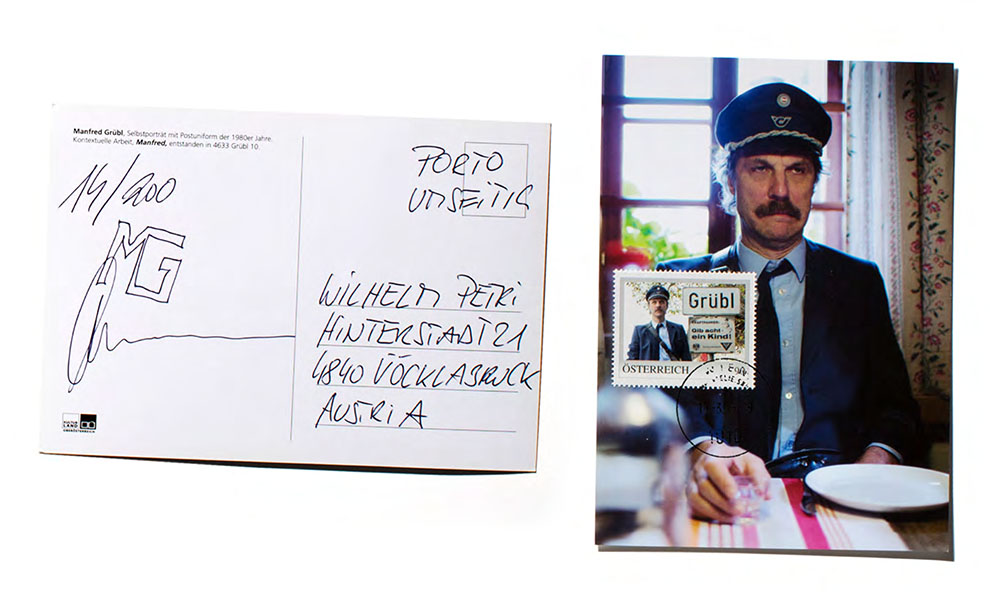 Manfred Grübl, Selbstporträt mit Postuniform der 1980er Jahre.
Kontextuelle Arbeit, Manfred, entstanden in 4633 Grübl 10.
14/200
MG
PORTO
UMSEITIG
WILHELM PETRI
HINTERSTADT 21
4840 VÖCKLABRUCK
AUSTRIA
KULTUR
LAND
OBERÖSTERREICH
Grübl
Gib acht
ein Kind!
ÖSTERREICH